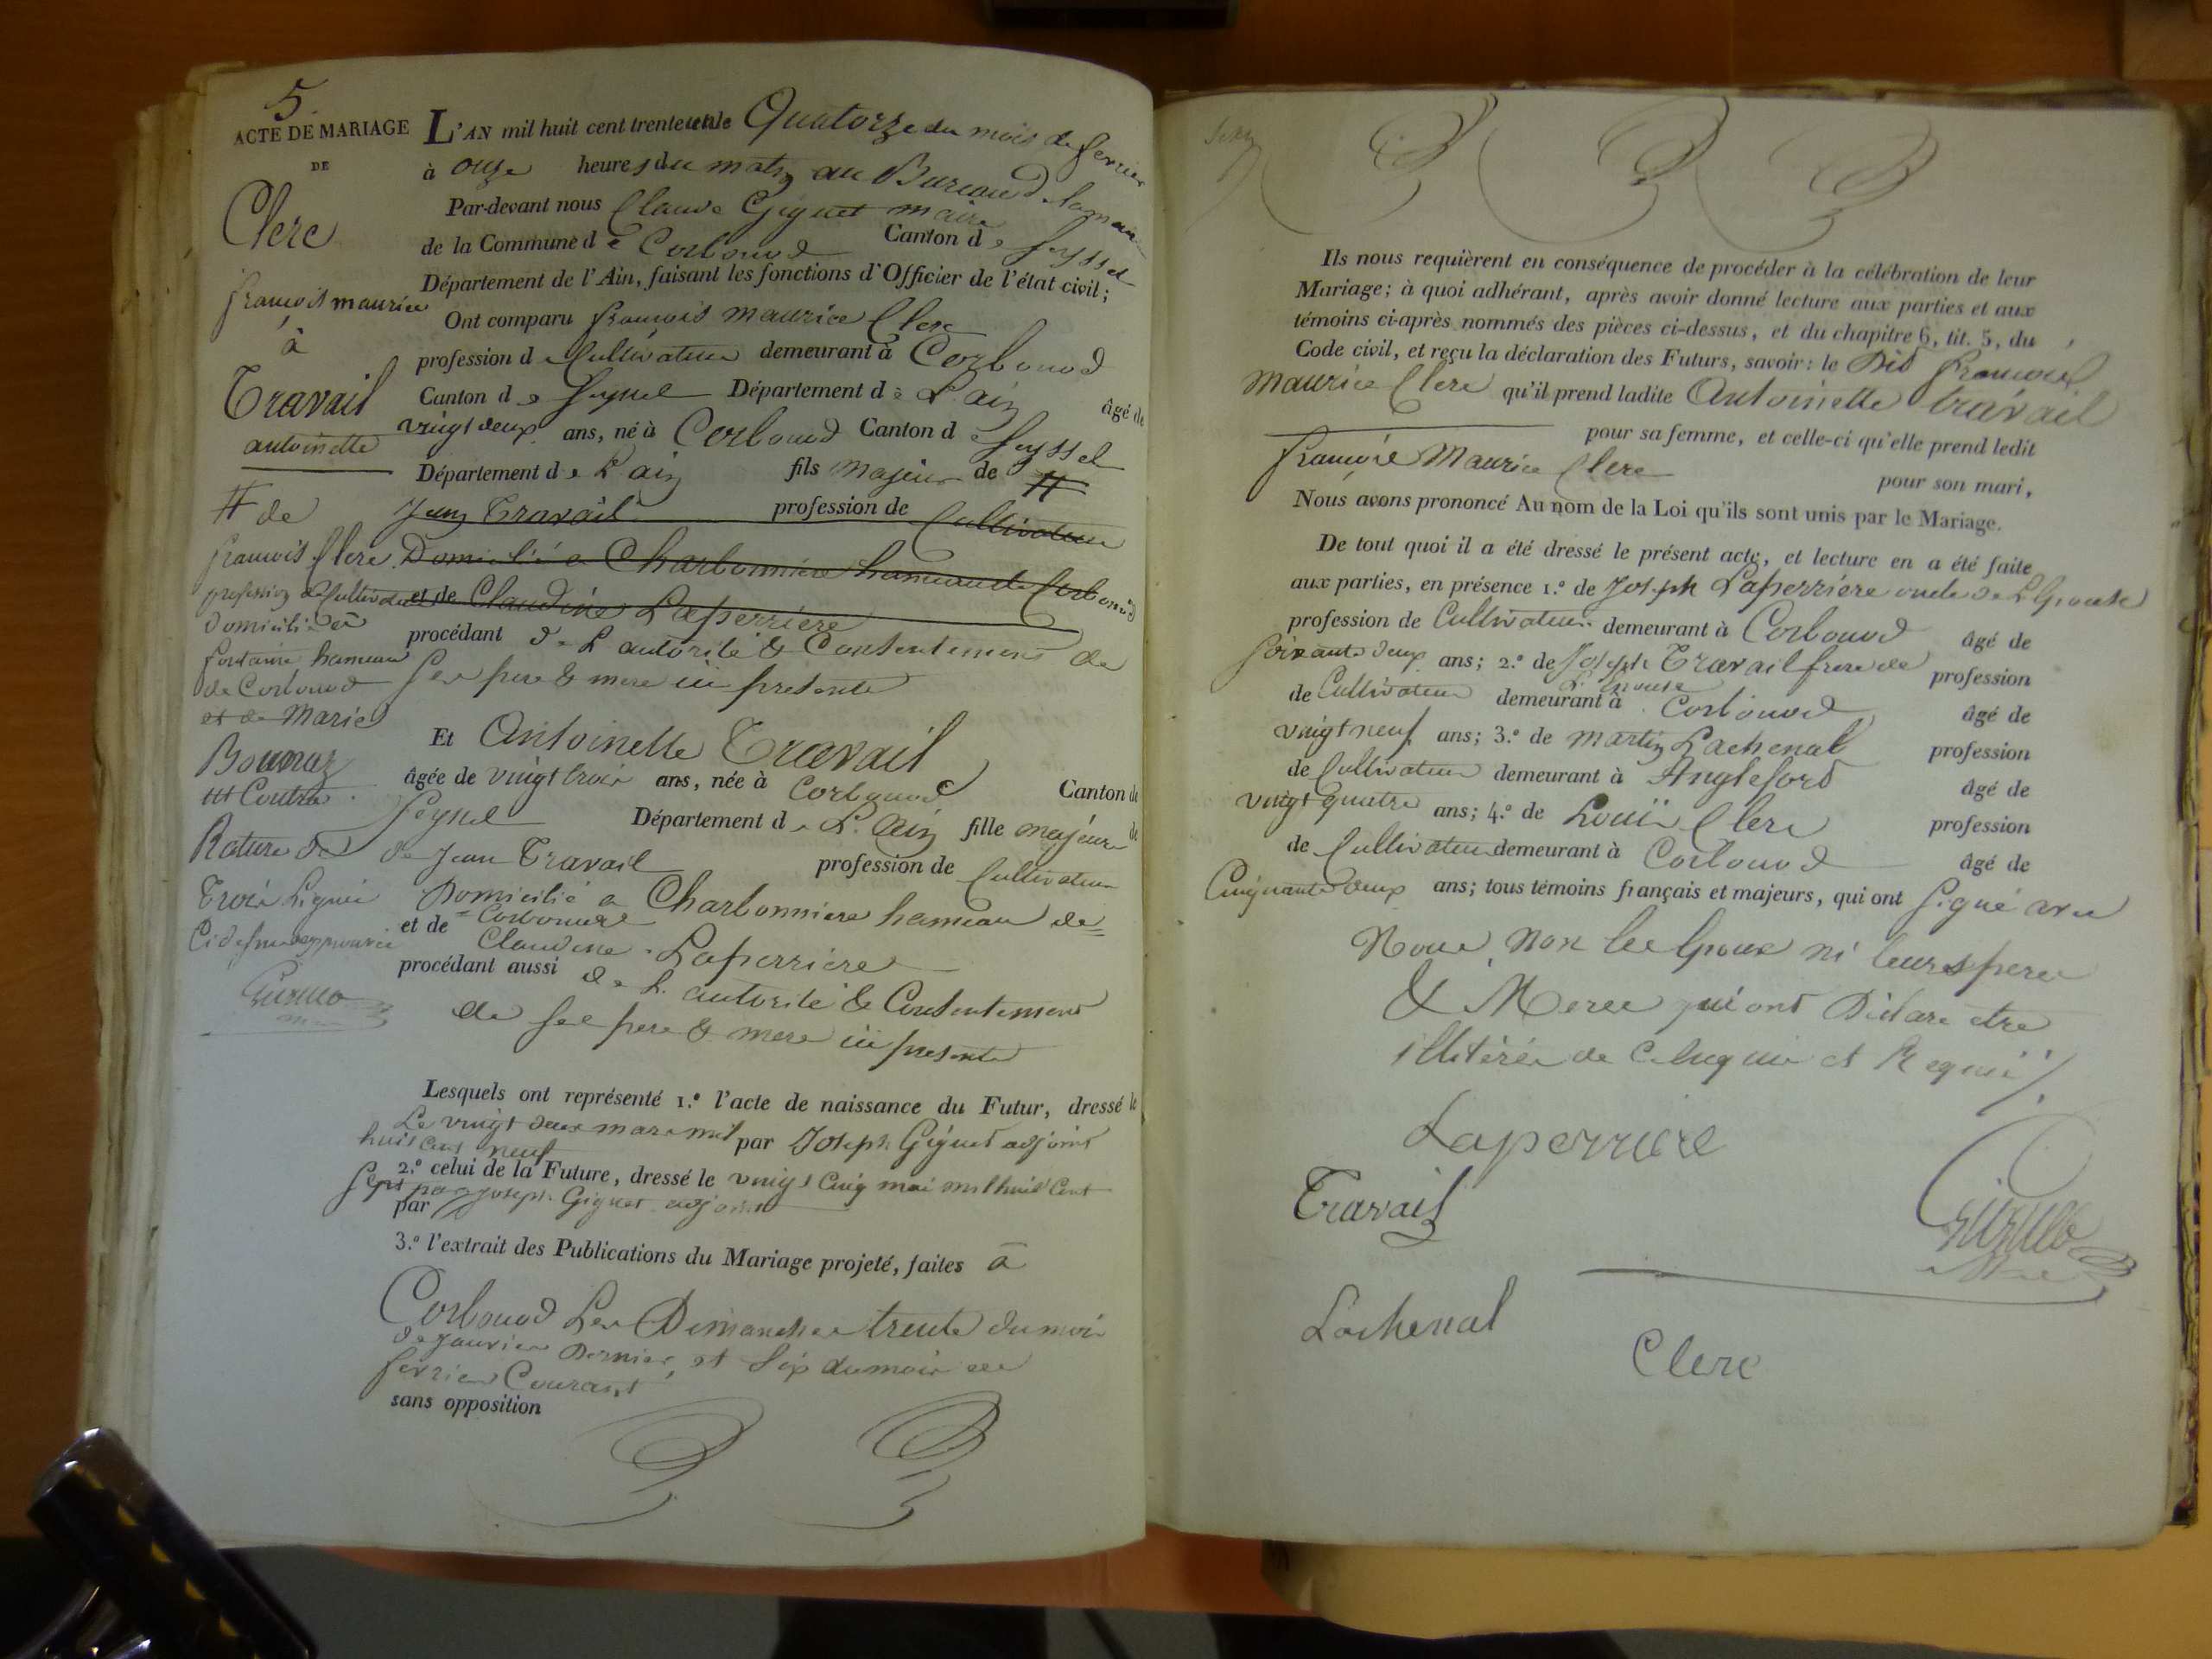 5.
ACTE DE MARIAGE
DE
Clerc
françois maurice
à
Travail
antoinette
# de
francois Clerc
profession de Cultivateur
domicilié à
fontaine hameau
de Corbonod
et de Marie
Bounaz
Rature de
Trois Lignes
Ci dessus approuvée
L'AN mil huit cent trente et un le Quatorze du mois de fevrier
à onze heures du matin au Bureau de la mairie
Par-devant nous Claude Giguet maire
de la Commune de Corbonod Canton de Seyssel
Département de l'Ain, faisant les fonctions d'Officier de l'état civil;
Ont comparu françois maurice Clerc
profession de Cultivateur demeurant à Corbonod
Canton de Seyssel Département de L'ain âgé de
vingt deux ans, né à Corbonod Canton de Seyssel
Département de L'ain fils majeur de #
Jean Travail profession de Cultivateur
Domicilié a Charbonniere hameau de Corbonod
et de Claudine Laperriere
procédant de L'autorité & Consentement de
Ses pere & mere ici presents
Et Antoinette Travail
âgée de vingt trois ans, née à Corbonod Canton de
Seyssel Département de L'Ain fille majeure de
de Jean Travail profession de Cultivateur
Domicilié a Charbonniere hameau de
Corbonod
et de Claudine Laperriere
procédant aussi de L'autorité & Consentement
de ses pere & mere ici presents
Lesquels ont représenté 1.º l'acte de naissance du Futur, dressé le
Le vingt deux mars mil par Joseph Giguet adjoint
huit cent neuf
2.º celui de la Future, dressé le vingt Cinq mai mil huit Cent
Sept par Joseph Giguet adjoint
par
3.º l'extrait des Publications du Mariage projeté, faites à
Corbonod Les Dimanches trente du mois
de janvier Dernier, et Six du mois de
fevrier Courant
sans opposition
Ils nous requièrent en conséquence de procéder à la célébration de leur
Mariage; à quoi adhérant, après avoir donné lecture aux parties et aux
témoins ci-après nommés des pièces ci-dessus, et du chapitre 6, tit. 5, du
Code civil, et reçu la déclaration des Futurs, savoir: le Dit François
Maurice Clerc qu'il prend ladite Antoinette travail
pour sa femme, et celle-ci qu'elle prend ledit
François Maurice Clerc pour son mari,
Nous avons prononcé Au nom de la Loi qu'ils sont unis par le Mariage.
De tout quoi il a été dressé le présent acte, et lecture en a été faite
aux parties, en présence 1.º de Joseph Laperriere oncle de L'Epouse
profession de Cultivateur demeurant à Corbonod âgé de
soixante deux ans; 2.º de Joseph Travail frere de profession
L'Epouse
de Cultivateur demeurant à Corbonod âgé de
vingt neuf ans; 3.º de Martin Lachenal profession
de Cultivateur demeurant à Anglefort âgé de
vingt quatre ans; 4.º de Louis Clerc profession
de Cultivateur demeurant à Corbonod âgé de
Cinquante deux ans; tous témoins français et majeurs, qui ont signé avec
Nous, non les Epoux ni leurs peres
& Meres qui ont Déclaré etre
illitérés de ce enquis et Requis ./.
Laperriere
Travail
Lachenal
Clerc